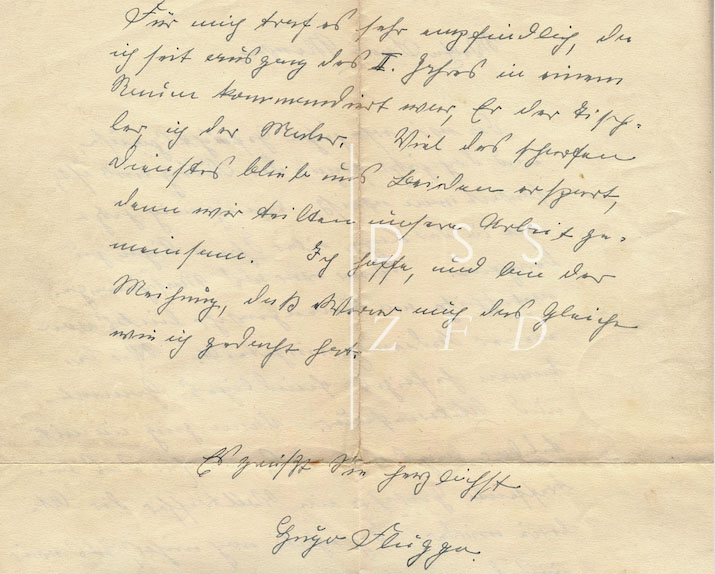 Für mich traf es sehr empfindlich, da
ich seit ausgang des II. Jahres in einem
Raum kommandiert war, Er der Tisch-
ler, ich der Maler. Viel des scharfen
Dienstes blieb uns Beiden erspart,
denn wir teilten unsere Arbeit ge-
meinsam. Ich hoffe, und bin der
Meinung, daß Werner auch das Gleiche
wie ich gedacht hat.
Es grüßt Sie herzlichst
Hugo Flügge.
DSS
ZFD